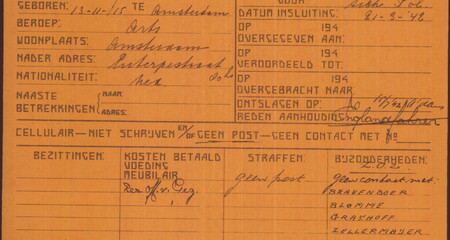 GEBOREN: 13-11-'15 TE Amsterdam
BEROEP: Arts
WOONPLAATS: Amsterdam
NADER ADRES: Euterpestraat
NATIONALITEIT: Ned
NAASTE BETREKKINGEN NAAM:
ADRES:
DOOR
DATUM INSLUITING:
21-3-'42
OP 194
OVERGEGEVEN AAN:
OP 194
VEROORDEELD TOT:
OP 194
OVERGEBRACHT NAAR
ONTSLAGEN OP:
REDEN AANHOUDING Englandfahrer
CELLULAIR—NIET SCHRIJVEN EN/OF GEEN POST—GEEN CONTACT MET No
BEZITTINGEN:
KOSTEN BETAALD
VOEDING
MEUBILAIR
STRAFFEN:
Geen post
BIJZONDERHEDEN:
Geen contact met:
BRAVENBOER
BLOMME
GRASHOFF
ZELLERMAYER